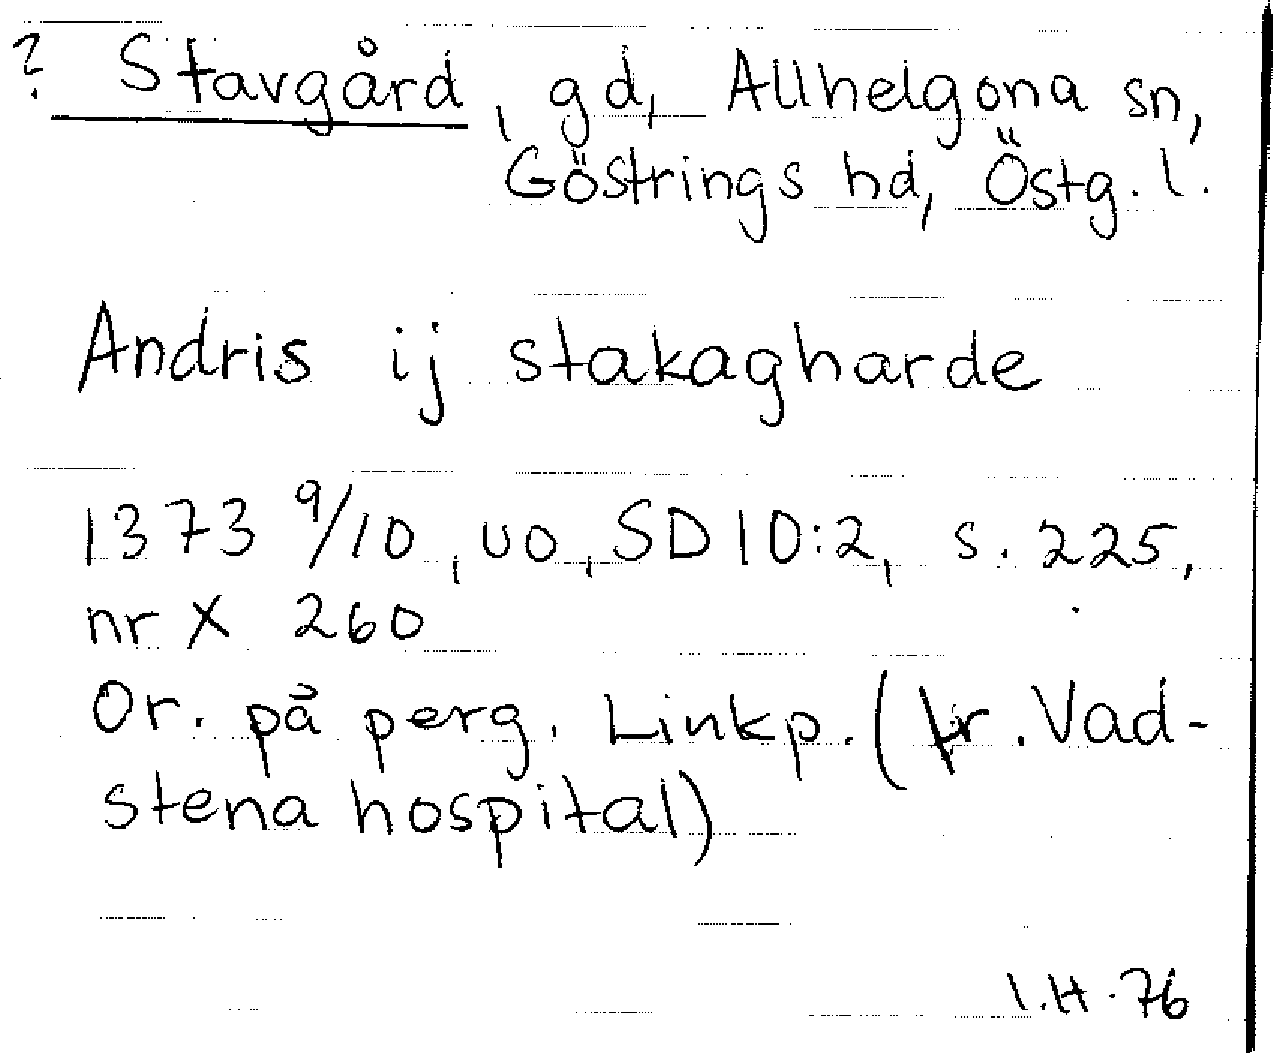 ? Stavgård, gd, Allhelgona sn,
Göstrings hd, Östg. l.
Andris ij stakagharde
1373 9/10, uo, SD 10:2, s. 225,
nr X 260
Or. på perg. Linkp. (fr. Vad-
stena hospital)
I.H. 76